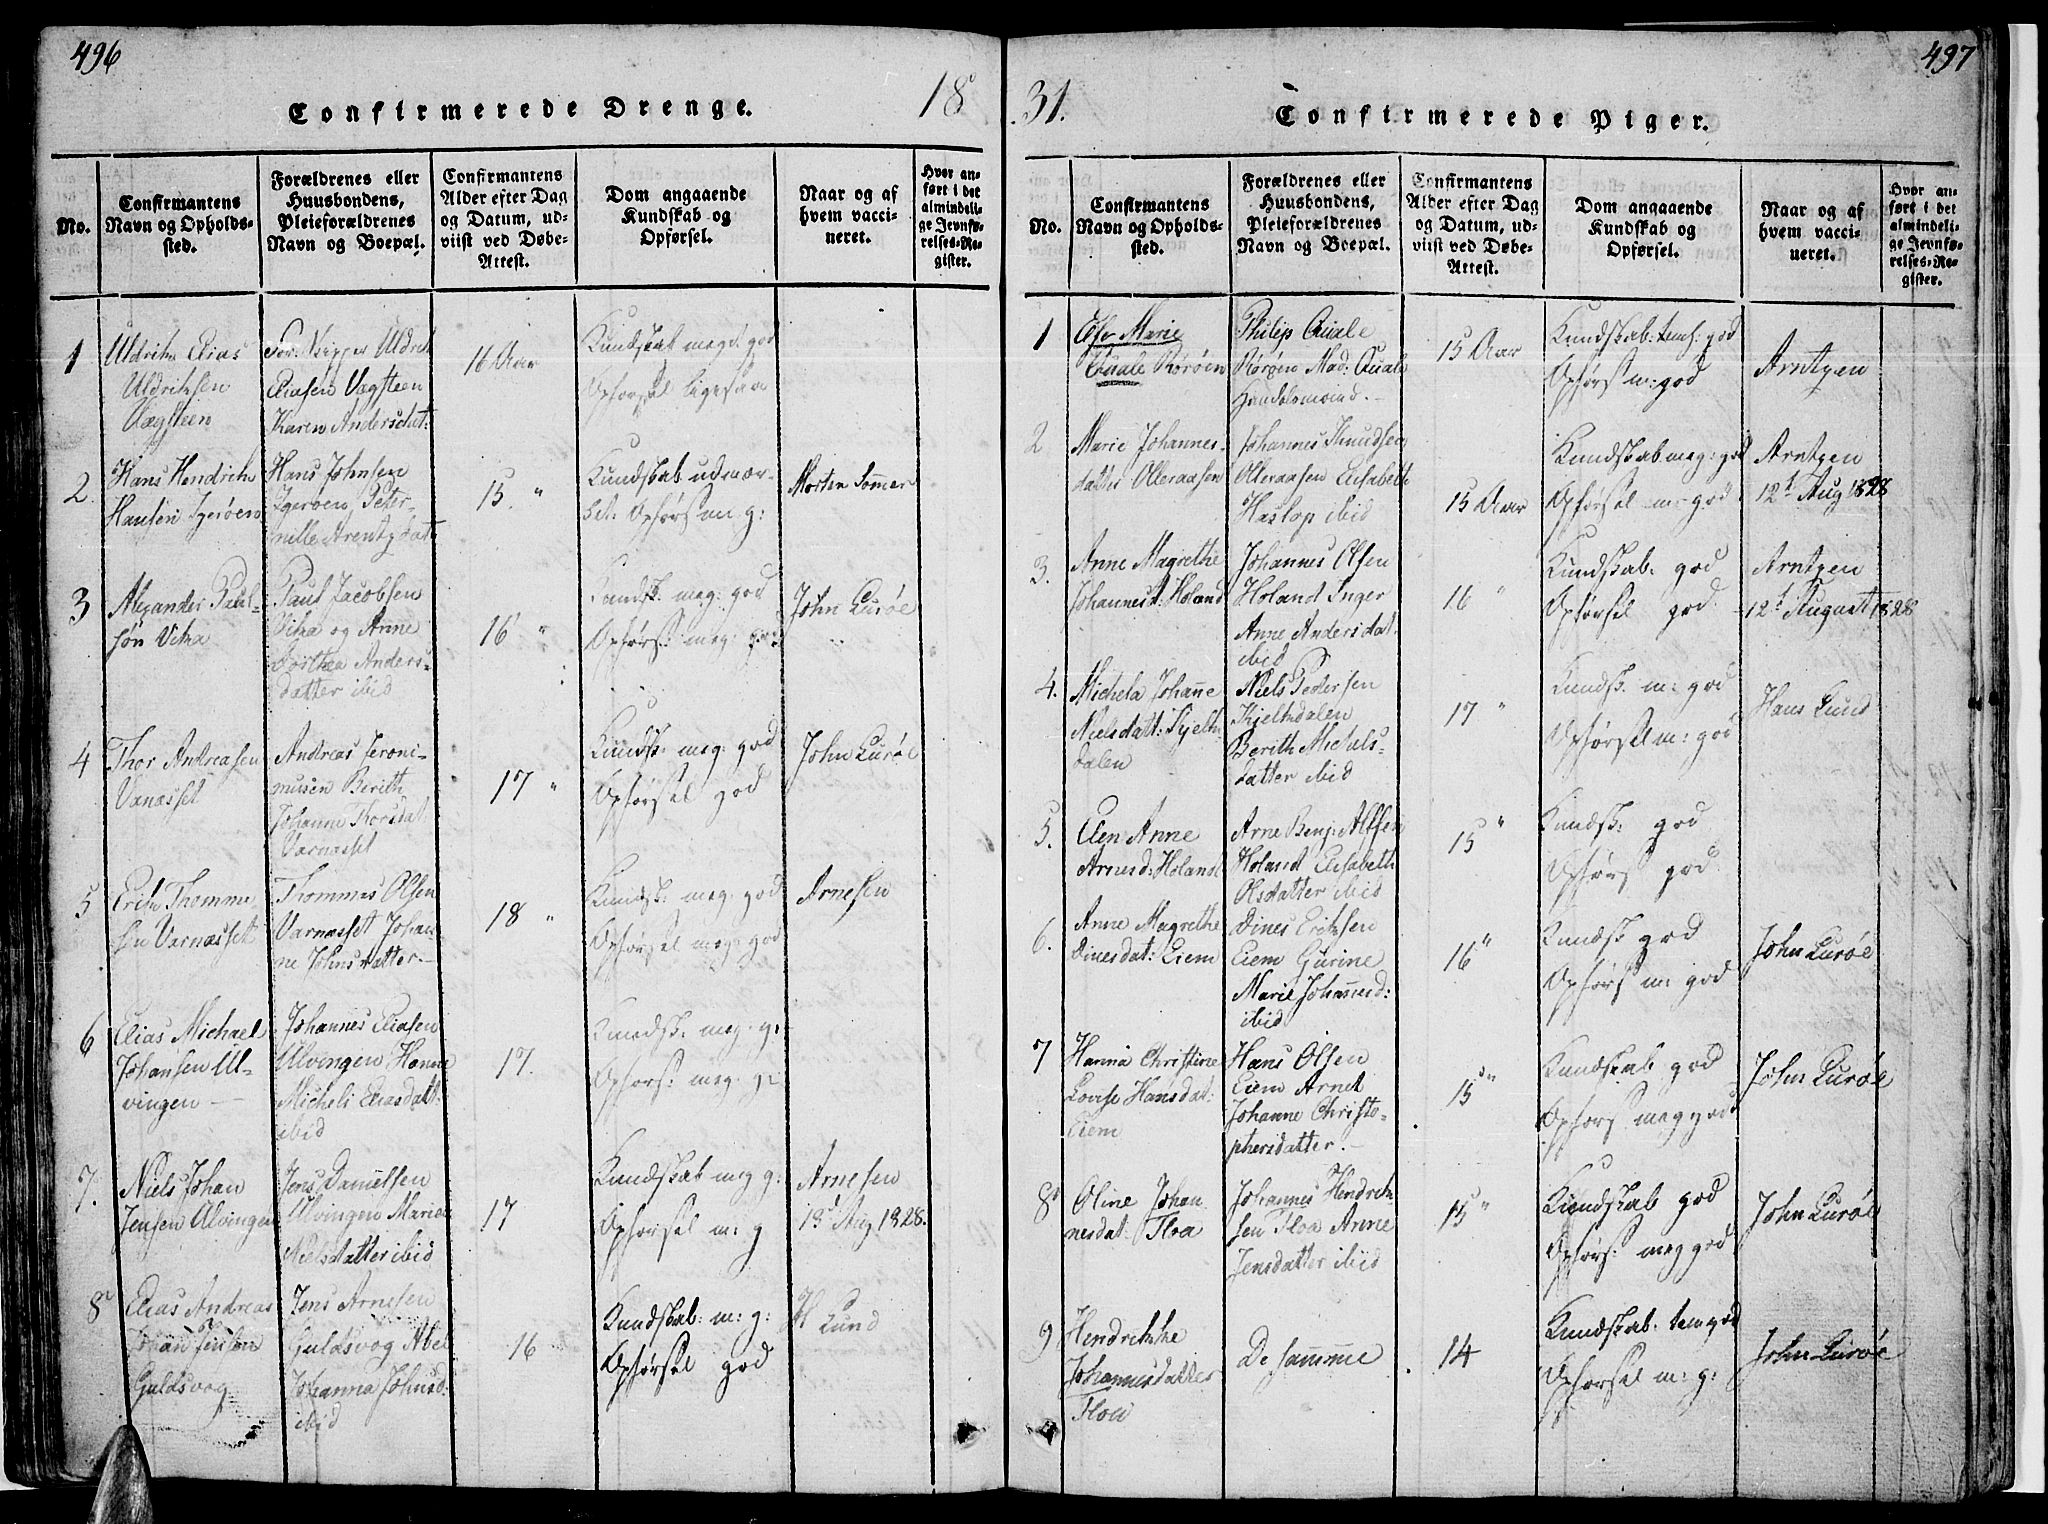 496
Confirmerede Drenge.
18
No.
Confirmantens
Navn og Opholds-
sted.
Forældrenes eller
Huusbondens,
Pleieforældrenes
Navn og Boepæl.
Confirmantens
Alder efter Dag
og Datum, ud-
viist ved Døbe-
Attest.
Dom angaaende
Kundskab og
Opførsel.
Naar og af
hvem vacci-
neret.
Hvor an-
ført i det
almindeli-
ge Jevnfø-
relses-Re-
gister.
1
Uldrik Elias
Uldriksen
Vægsteen
Uldrik
Eliasen Vægsteen
Karen Andersdat:
16 Aar
Kundskab meg: god
Opførsel ligesaa
2
Hans Hendrik
Hansen Igerøen
Hans Johnsen
Igerøen Peter-
nille Arentzdat:
15 "
Kundskab udmær-
Opførs m: g:
Morten Sommer
3
Alexander Paul-
søn Vika
Paul Jacobsen
Vika og Anne
Dorthea Anders-
datter ibid
16 "
Kundsk: meg: god
Opførs: meg: god
John Lurøe
4
Thor Andreasen
Varnæsset
Andreas Jeroni-
musen Berith
Johanne Thorsdat
Varnæsset
17 "
Kundsk: meg: god
Opførsel god
John Lurøe
5
Erik Thomme-
sen Varnæsset
Thommes Olsen
Varnæsset Johan-
ne Johnsdatter.-
18 "
Kundsk: meg: god
Opførsel meg: god
Arnesen
6
Elias Michael
Johansen Ul-
vingen -
Johannes Eliasen
Ulvingen Hanne
Micheli Eliasdatt:
ibid
17.
Kundsk: meg: g:
Opførs: meg: g:
7.
Niels Johan
Jensen Alvingen
Jens Danielsen
Alvingen Maria
Nielsdatter ibid
17
Kundskab meg g:
Opførsel m: g
Arnesen
13 Aug 1828.
8
Elias Andreas
Johan Jensen
Guldsvog
Jens Arnesen
Guldsvog Abel
Johanna Johnsd:
ibid
16
Kundskab: m: g:
Opførsel god
H Lund
497
31.
Confirmerede Piger.
No.
Confirmantens
Navn og Opholds-
sted.
Forældrenes eller
Huusbondens,
Pleieforældrenes
Navn og Boepæl.
Confirmantens
Alder efter Dag
og Datum, ud-
viist ved Døbe-
Attest.
Dom angaaende
Kundskab og
Opførsel.
Naar og af
hvem vacci-
neret.
Hvor an-
ført i det
almindeli-
ge Jevnfø-
relses-Re-
gister.
1
Marie
Quale Rørøen
Philip Quale
Rørøen Mad: Quale
Handelsmand.-
15 Aar
Kundskab: temh: god
Opførs m: god
Arntzen
2
Marie Johannes-
datter Olleraasen
Johannes Knudsen
Olleraasen Elisabeth
Haslop ibid
15 Aar
Kundskab meg: god
Opførsel m: god
Arntzen
12t Aug 1828
3.
Anne Magrethe
Johannesd: Holand
Johannes Olsen
Holand Inger
Anne Andersdat.
ibid
16 "
Kundskab: god
Opførsel god
Arntzen
12t August 1828
4.
Michela Johanne
Nielsdatt: Kjelk-
dalen
Niels Pedersen
Kjelkdalen
Berith Michels-
datter ibid
17 "
Kundsk: m: god
Opførsel m: god
Hans Lund
5.
Elen Anne
Arnesd: Holand
Arne Benj: Alfsen
Holand Elisabeth
Olsdatter ibid
15 "
Kundsk: god
Opførs god
6.
Anne Magrethe
Dinesdat: Eiem
Dines Eriksen
Eiem Gurine
Marie Johannesd:
ibid
16 "
Kundsk god
Opførs m: god
John Lurøe
7
Hanna Christine
Lovise Hansdat:
Eiem
Hans Olsen
Eiem Arnet
Johanne Christo-
phersdatter.-
15 "
Kundskab god
Opførs meg god
John Lurøe
8
Oline Johan
nesdat: Floa
Johannes Hendrik-
sen Floa Anne
Jensdatter ibid
15 "
Kundskab god
Opførs: meg god
John Lurøe
9
Hendrikke
Johannesdatter
Floa
De samme
14
Kundskab: tem god
Opførsel m: g:
John Lurøe